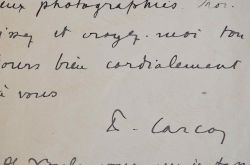 eux photographies.
issez et croyez-moi tou
jours bien cordialement
à vous
F. Carco